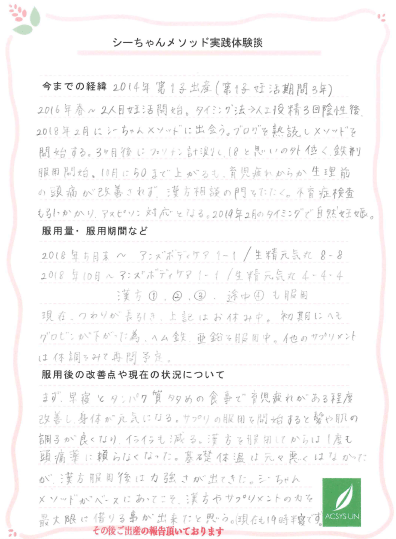 シーちゃんメソッド実践体験談
今までの経緯 2014年 第1子出産(第1子妊活期間3年)
2016年春〜2人目妊活開始。タイミング法→人工授精3回陰性後、
2018年2月にシーちゃんメソッドに出会う。ブログを熟読しメソッドを
開始する。3ヶ月後にフェリチン計測し、18と思いの外低く、鉄剤
服用開始。10月に50まで上がるも、育児疲れからか生理前
の頭痛が改善されず、漢方相談の門をたたく。不育症検査
もちにかかり、アスピリン対応となる。2019年2月のタイミングで自然妊娠。
服用量・服用期間など
2018年5月末〜 アンズボディケア1-1/生精元気丸 8-8
2018年10月〜アンズボディケア1-1/生精元気丸 4-4-4
漢方①、②、③、途中④も服用
現在、つわりが長引き、上記はお休み中。初期にヘモ
グロビンが下がった為、ヘム鉄、亜鉛を服用中。他のサプリメント
は体調をみて再開予定。
服用後の改善点や現在の状況について
まず、早寝とタンパク質多めの食事で育児疲れがある程度
改善し身体が元気になる。サプリの服用を開始すると髪や肌の
調子が良くなり、イライラも減る。漢方を服用してからは1度も
頭痛薬に頼らなくなった。基礎体温は元々悪くはなかった
が、漢方服用後は力強さが出てきた。シーちゃん
メソッドがベースにあってこそ、漢方やサプリメントの力を
最大限に借りる事が出来たと思う。現在も19時半寝です
ACSYS I.IN
その後ご出産の報告頂いております